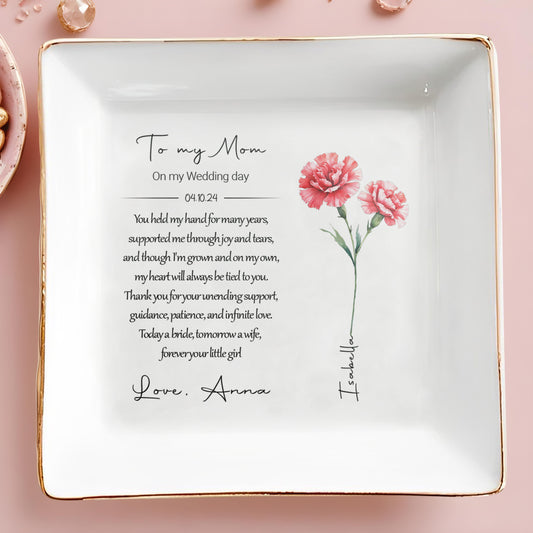 To my Mom
On my Wedding day
04.10.24
You held my hand for many years,
supported me through joy and tears,
and though I'm grown and on my own,
my heart will always be tied to you.
Thank you for your unending support,
guidance, patience, and infinite love.
Today a bride, tomorrow a wife,
forever your little girl
Love, Anna
Isabella